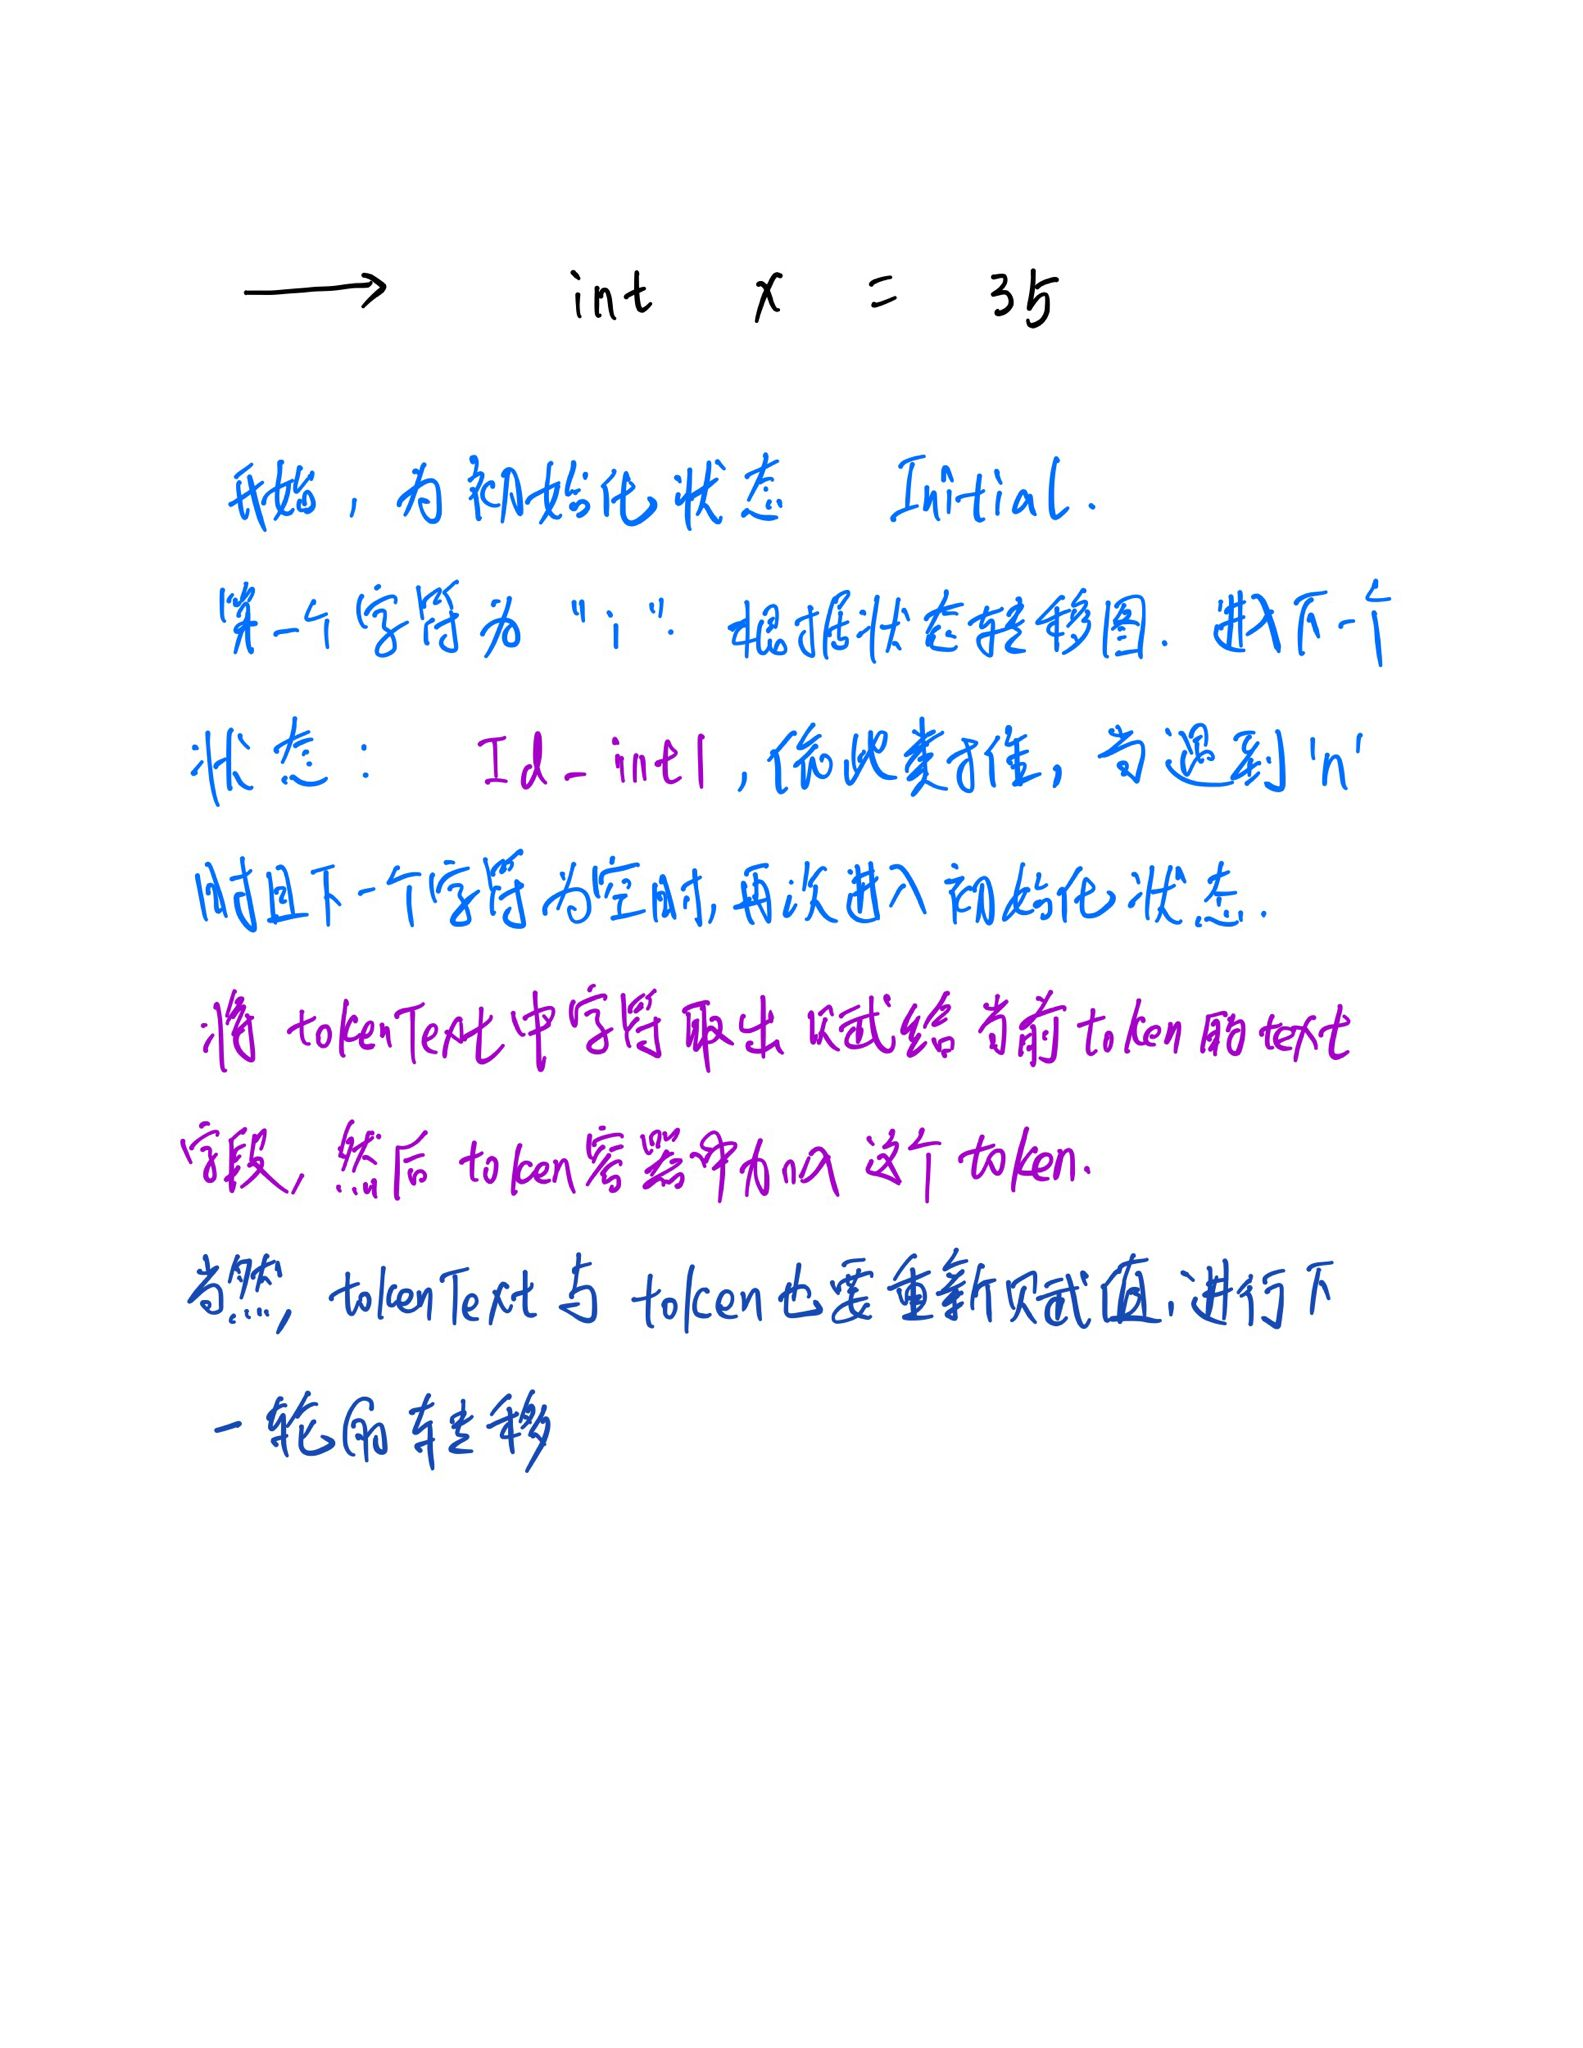 → int x = 35
开始，为初始化状态 Initial.
第一个字符为 "i". 根据状态转移图. 进入下一个
状态： Id_int1，依此类推，当遇到 'n'
时且下一个字符为空时,再次进入初始化状态.
将 tokenText中字符取出 赋给当前token的text
字段, 然后 token容器中加入 这个 token.
当然, tokenText 与 token也要重新赋值,进行下
一轮的转移